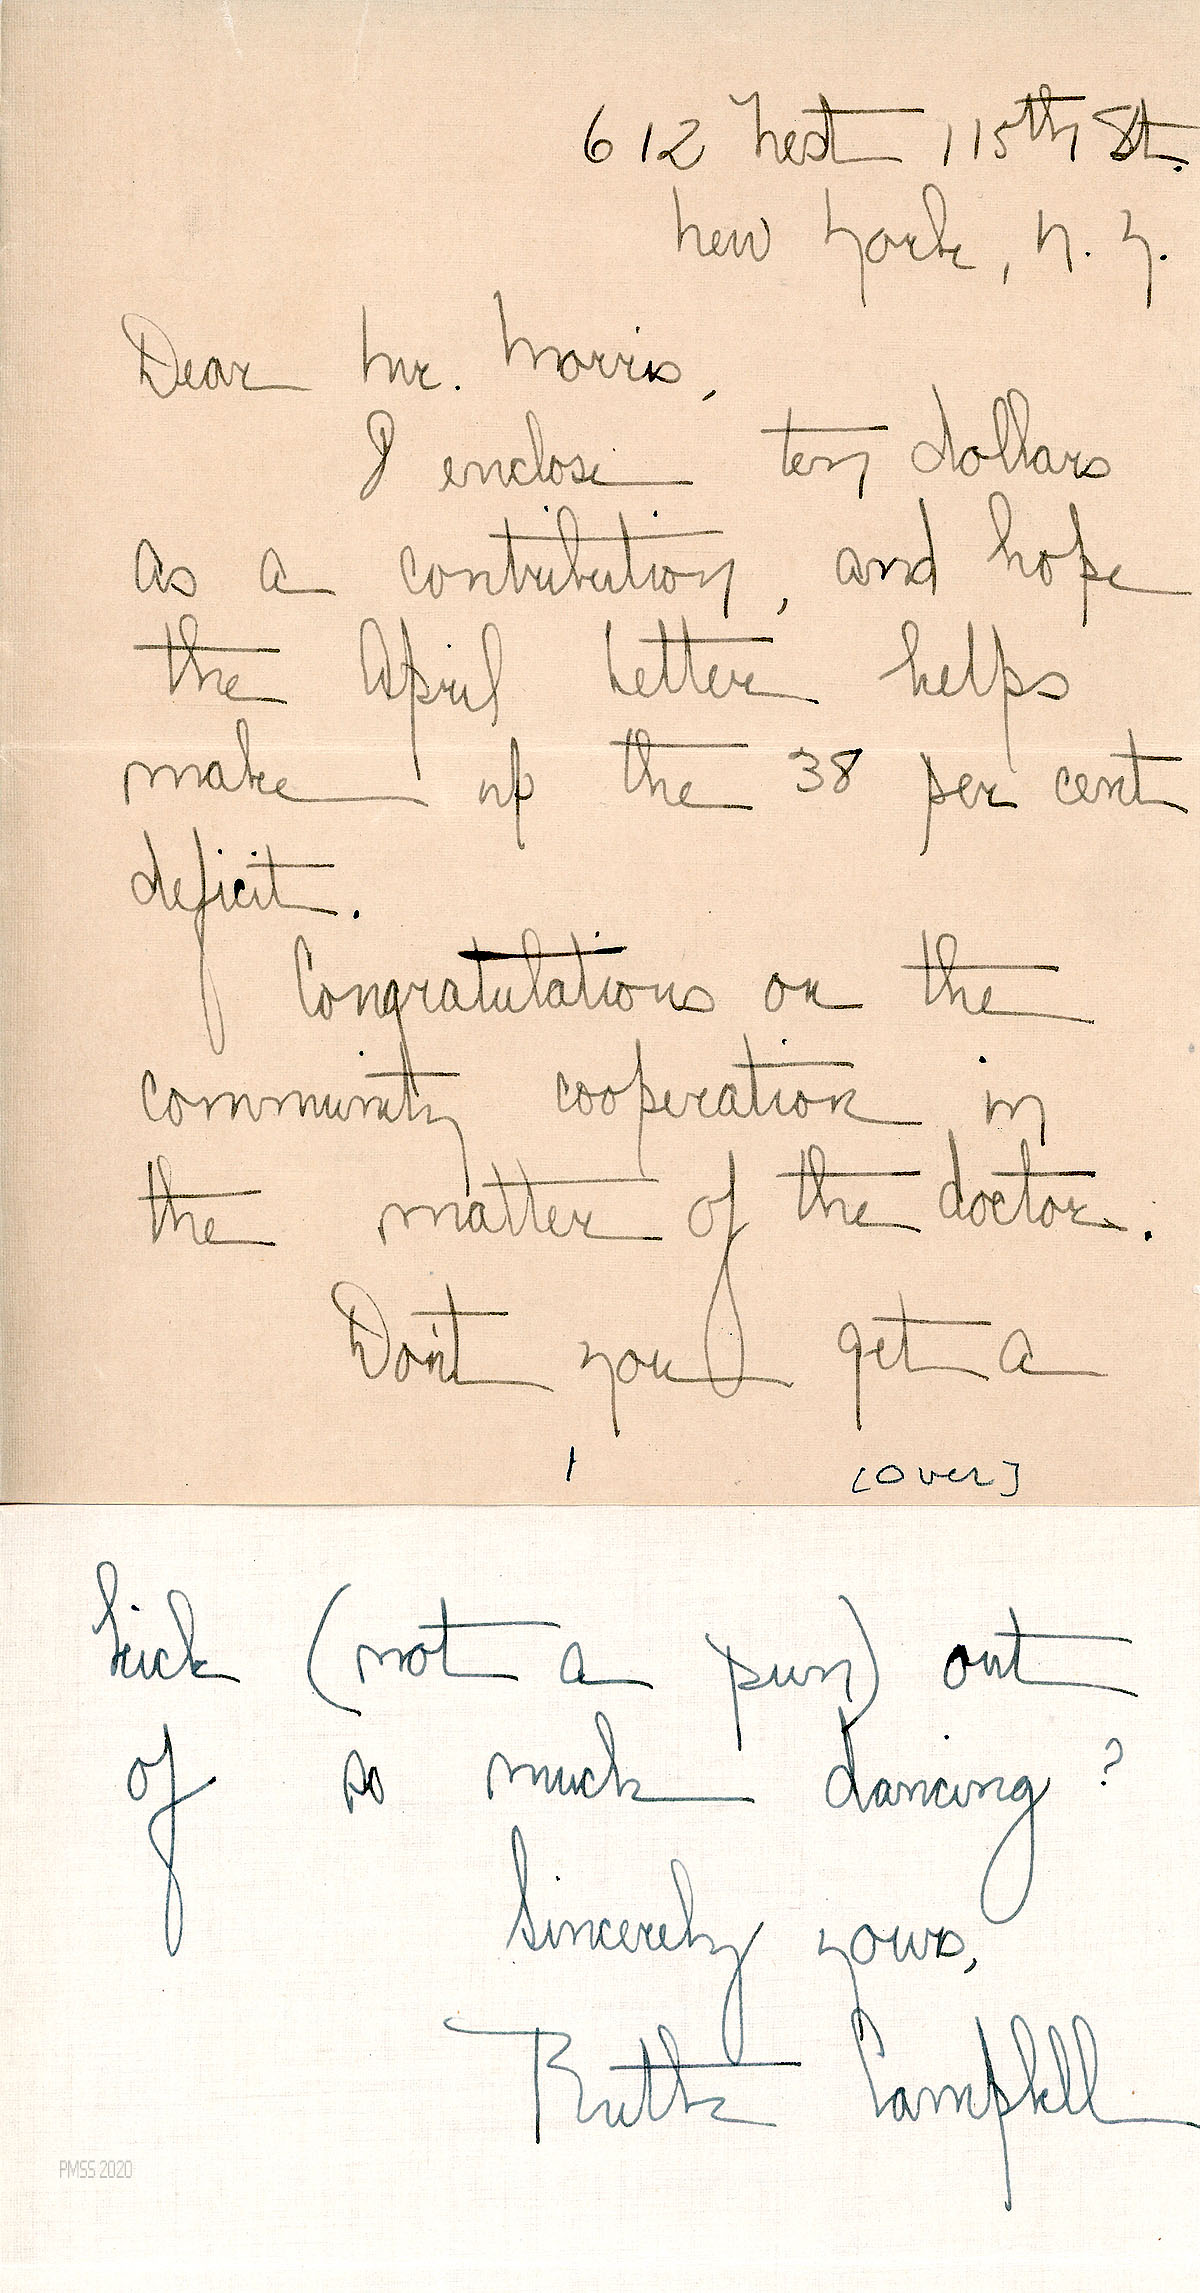 612 West 115th St.
New York, N. Y.
Dear Mr. Morris,
I enclose ten dollars
as a contribution, and hope
the April letter helps
make up the 38 per cent
deficit.
Congratulations on the
community cooperation in
the matter of the doctor.
Don't you get a
1 [over]
kick (not a pun) out
of so much dancing?
Sincerely yours,
Ruth Campbell
PMSS 2020